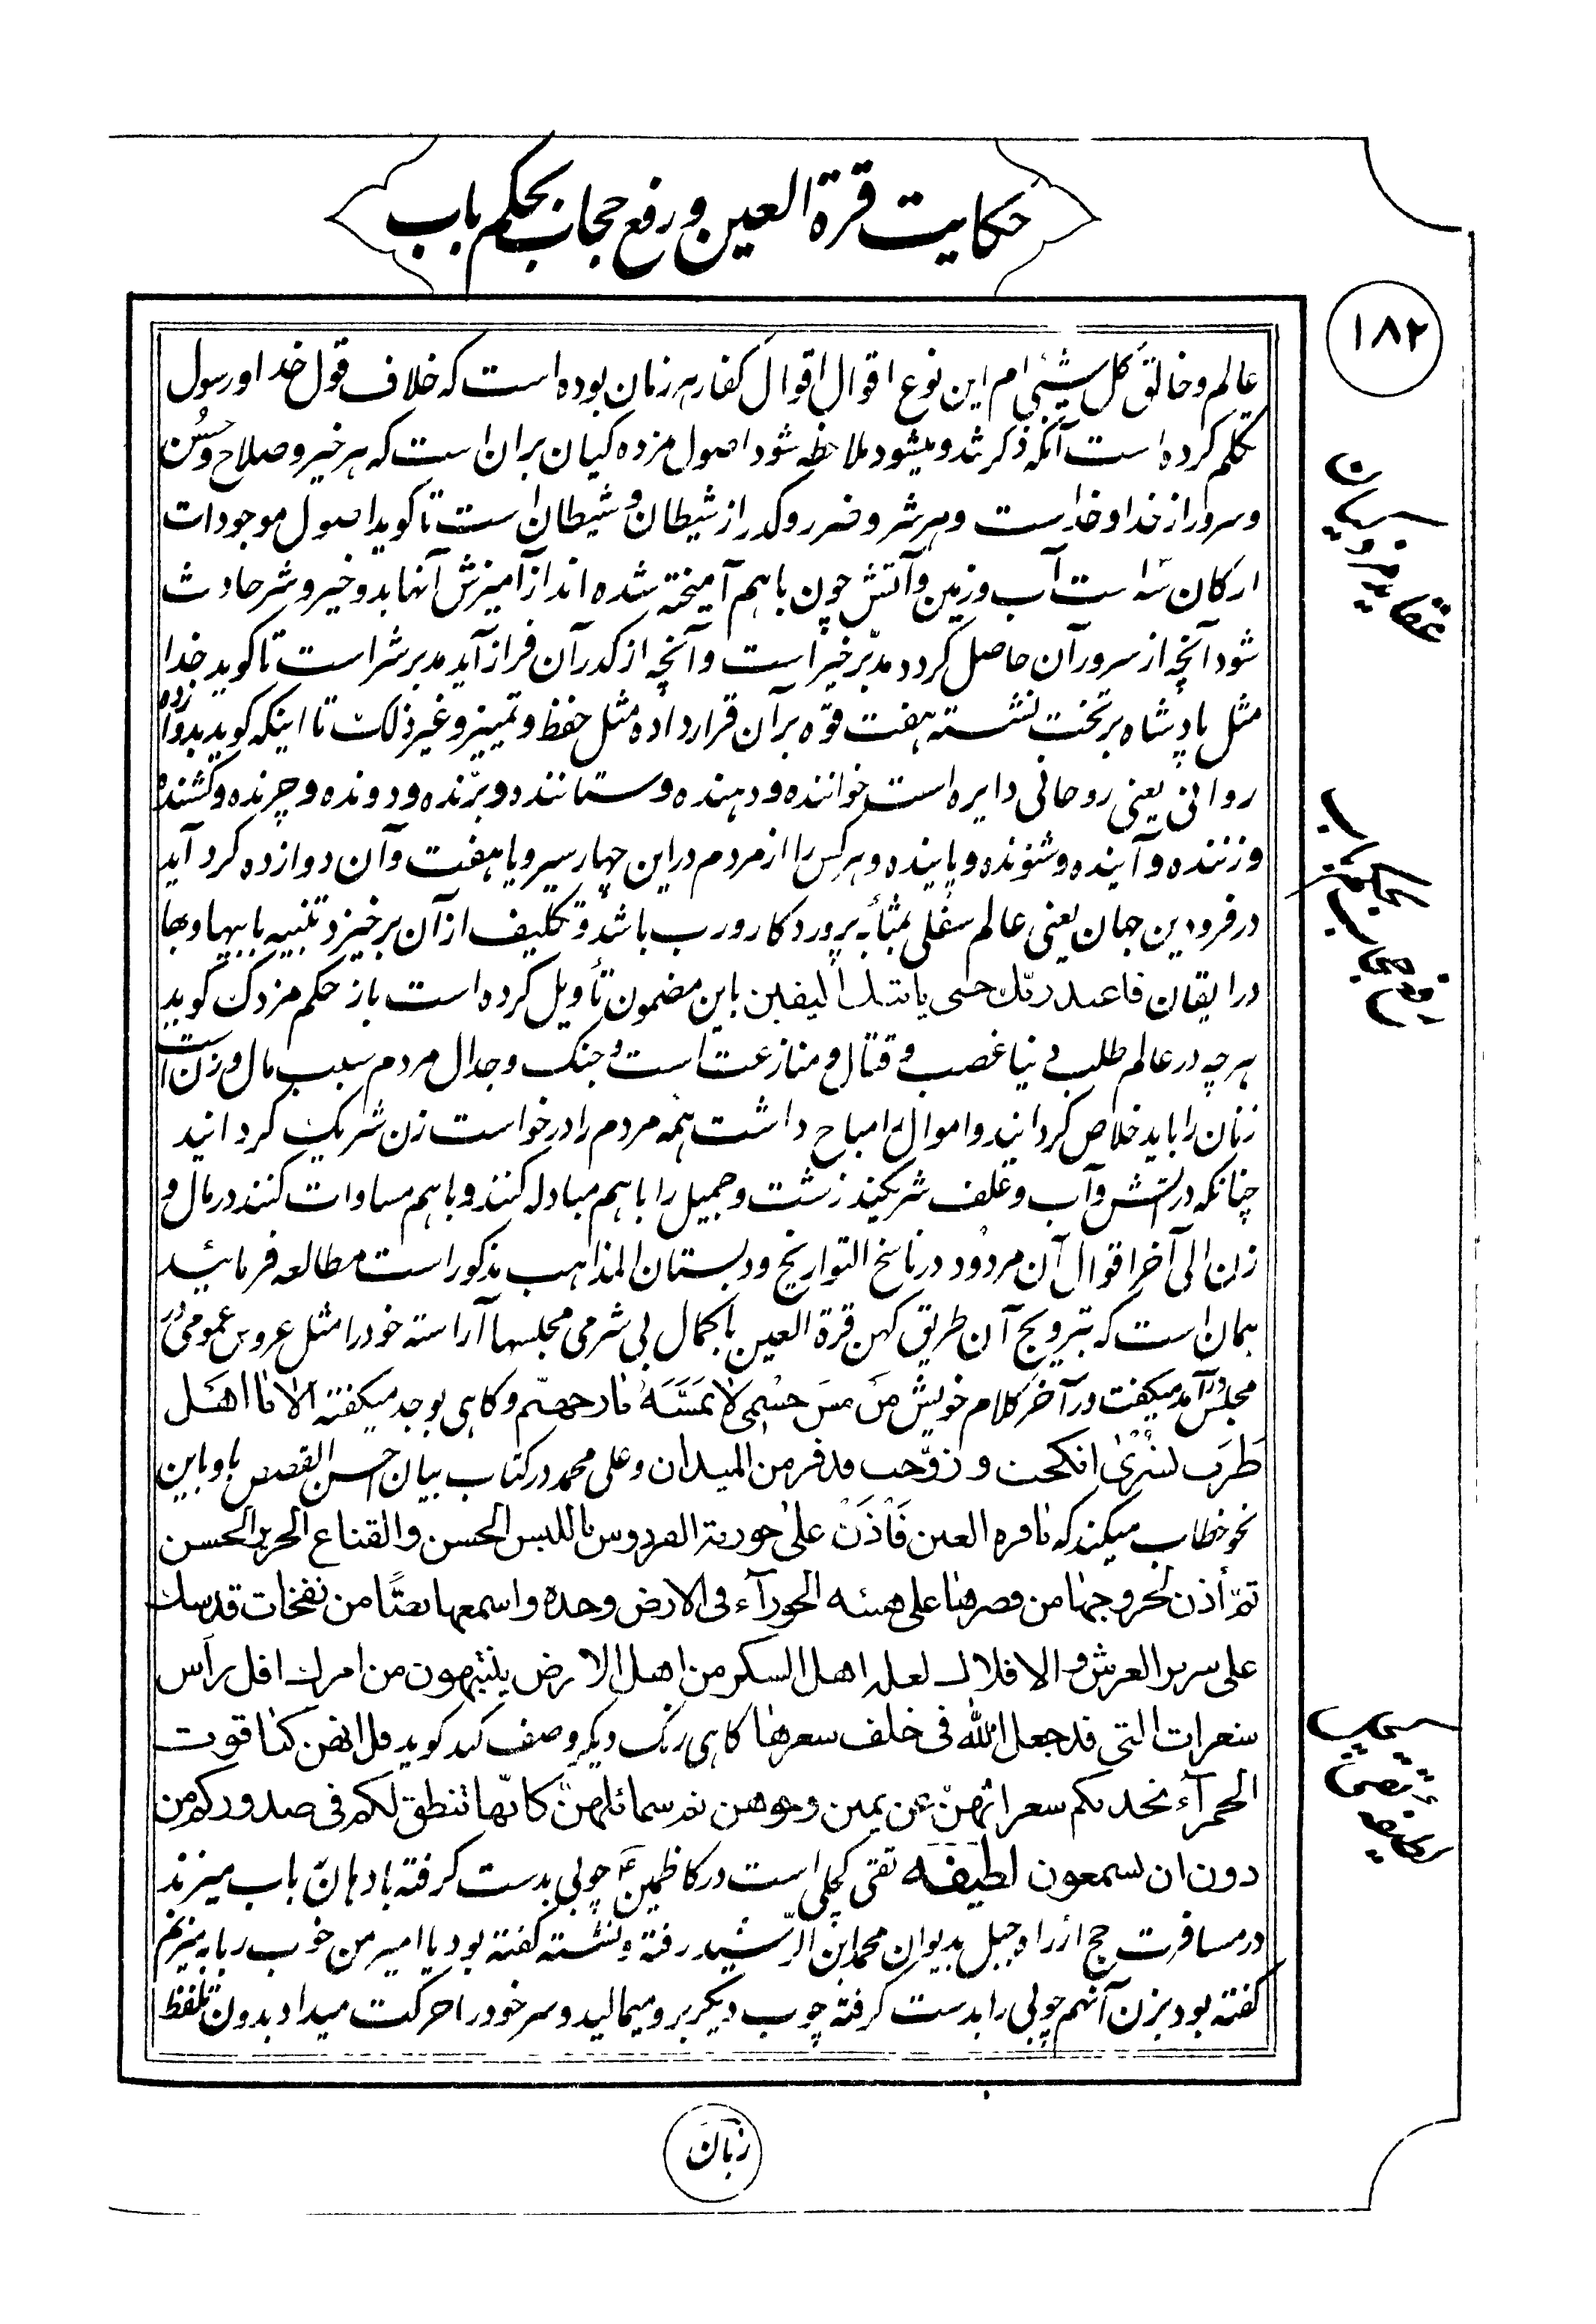 حکایت قرة العین و رفع حجاب بحکم باب
۱۸۲
عالم و خالق کل شیئی ام این نوع اقوال اقوال کفار هر زمان بوده است که خلاف قول خدا و رسول
تکلم کرده است آنکه ذکر شد و میشود ملاحظه شود اصول مزده کیان بران است که هر خیر و صلاح و حسن
و سرور از خدا و خداست و هر شر و ضرر و کدر از شیطان و شیطان است تا کوید اصول موجودات
ارکان ثلثه است آب و زمین و آتش چون با هم آمیخته شده اند از آمیزش آنها بد و خیر و شر حادث
شود آنچه از سرور آن حاصل کردد مدبّر خیر است و آنچه از کدر آن فراز آید مدبر شر است تا کوید خدا
مثل پادشاه بر تخت نشسته هفت قوّه بر آن قرار داده مثل حفظ و تمییز و غیر ذلک تا اینکه کوید بدوازده
روانی یعنی روحانی دایره است خواننده و دهنده و ستاننده و برنده و دونده و چرنده و کشنده
و زننده و آینده و شونده و پاینده و هر کس را از مردم در این چهار سیر و یا هفت و آن دوازده کرد آید
در فرودین جهان یعنی عالم سفلی بمثابهٔ پروردکار و رب باشد و تکلیف از آن برخیزد تنبیه بابیها و بها
در ایقان فاعبد ربّک حتی یاتیک الیقین باین مضمون تأویل کرده است باز حکم مزدک کوید
هر چه در عالم طلب دنیا غصب و قتال و منازعت است و جنک و جدال مردم سبب مال و زن است
زنان را باید خلاص کردانید و اموال مباح داشت همه مردم را در خواست زن شریک کردانید
چنانکه در آتش و آب و علف شریکند زشت و جمیل را با هم مبادله کنند و با هم مساوات کنند در مال و
زن الی آخر اقوال آن مردود در ناسخ التواریخ و دبستان المذاهب مذکور است مطالعه فرمائید
همان است که بترویج آن طریق کهن قرة العین با کمال بی شرمی مجلسها آراسته خود را مثل عروس عمومی در
مجلس در آمد میکفت در آخر کلام خویش من مس جسمی لا تمسّه نار جهنّم و کاهی بوجد میکفته الا نا اهل
طرب بشریٰ انکحت و زوّجت قد فر من المیدان و علی محمد در کتاب بیان احسن القصص باو باین
نحو خطاب میکند که یا قرة العین فاذن علیٰ حوریة الفردوس باللبس الحسن و القناع الحریر الحسن
ثمّ أذن لخروجها من قصرها علی هیئه الحورآء فی الارض وحده و اسمعها بعضًا من نفخات قدسک
علی سریر العرش و الافلاک لعل اهل السکر من اهل الارض ینتبهون من امرک اقل رأس
شعرات التی قد جعل الله فی خلف شعرها کاهی رنک دیکر وصف کند کوید قل انهن کیاقوت
الحمرآء نحدیکم شعراتهنّ عن یمین وجوههن ثم شمائلهنّ کانّها تنطق لکم فی صدورکم من
دون ان تسمعون لطیفه تقی کچلی است در کاظمین ع چوبی بدست کرفته با دهان باب میزند
در مسافرت حج از راه جبل بدیوان محمد ابن الرّشید رفته و نشسته کفته بود یا امیر من خوب ربابه میزنم
کفته بود بزن آنهم چوبی را بدست کرفته چوب دیکر بر و میمالید و سر خود را حرکت میداد بدون تلفظ
عقاید مزدکیان
رفع حجاب بحکم باب
زبان